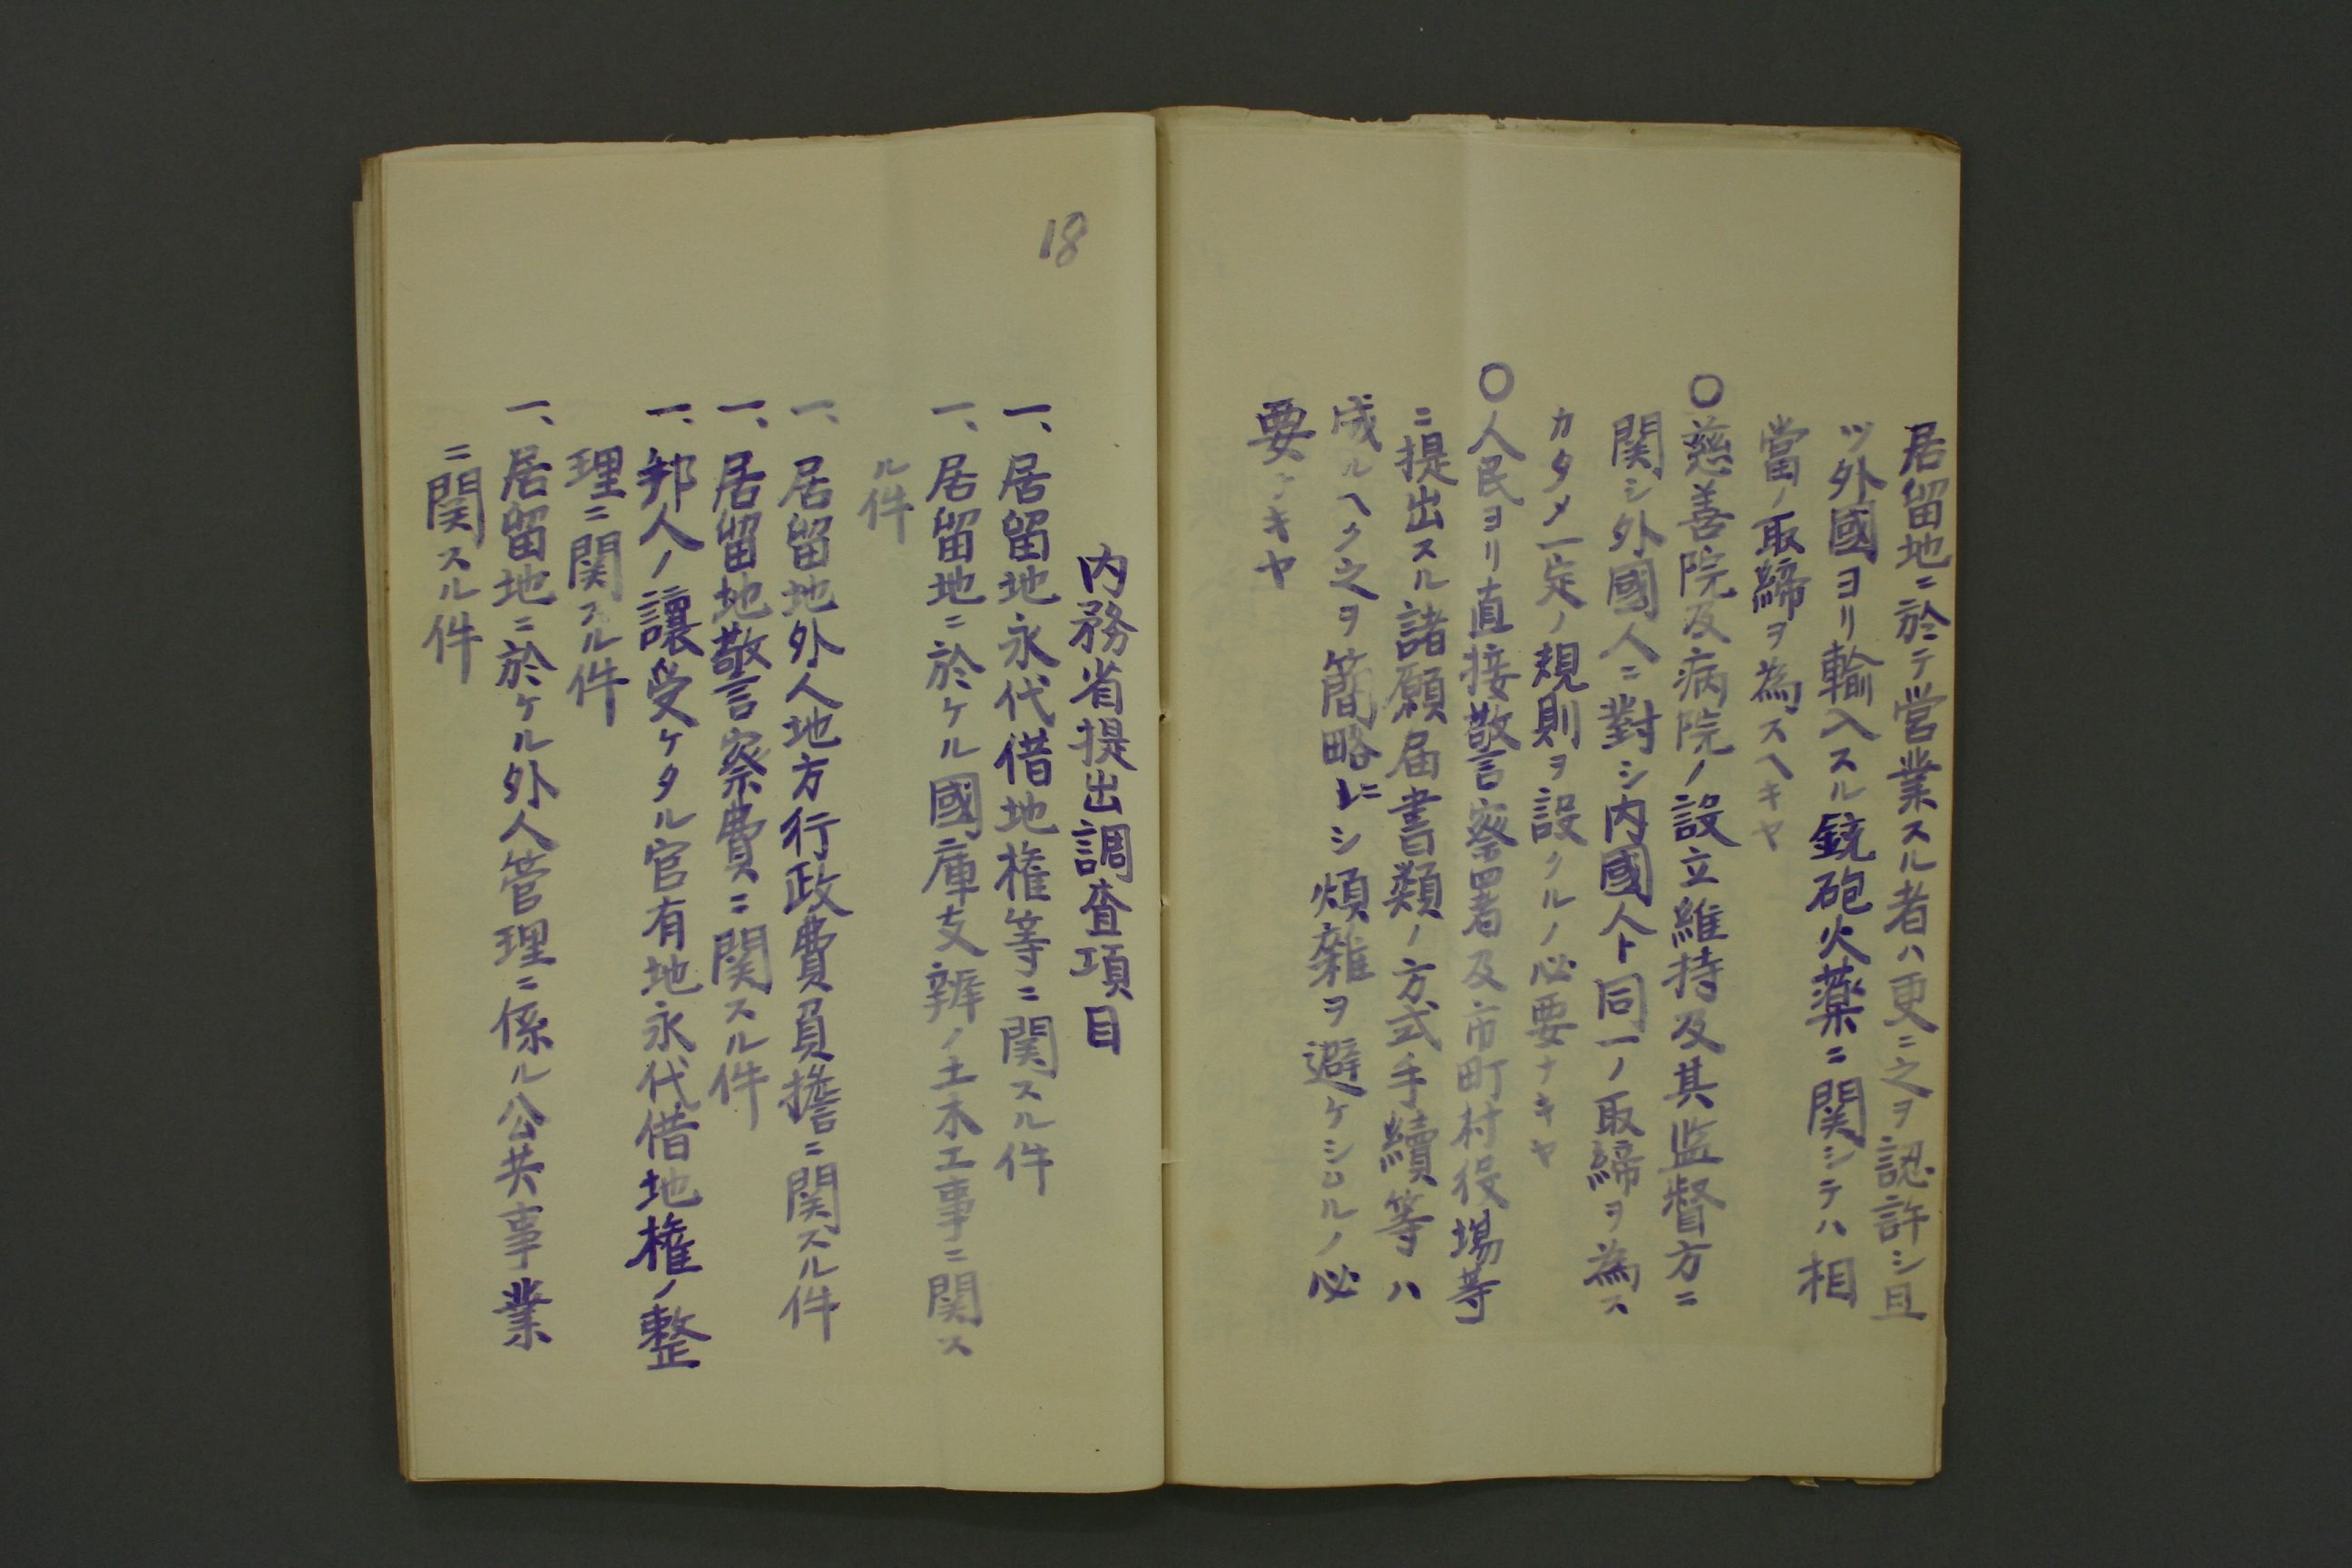 居留地ニ於テ営業スル者ハ更ニ之ヲ認許シ且
ツ外國ヨリ輸入スル銃砲火薬ニ関シテハ相
當ノ取締ヲ為スヘキヤ
〇慈善院及病院ノ設立維持及其監督方ニ
関シ外國人ニ對シ内國人ト同一ノ取締ヲ為ス
カタメ一定ノ規則ヲ設クルノ必要ナキヤ
〇人民ヨリ直接警察署及市町村役場等
ニ提出スル諸願届書類ノ方式手續等ハ
成ルヘク之ヲ簡略ニシ煩雑ヲ避ケシムルノ必
要ナキヤ
18
内務省提出調査項目
一、居留地永代借地権等ニ関スル件
一、居留地ニ於ケル國庫支辨ノ土木工事ニ関ス
ル件
一、居留地外人地方行政費負擔ニ関スル件
一、居留地警察費ニ関スル件
一、邦人ノ讓受ケタル官有地永代借地権ノ整
理ニ関スル件
一、居留地ニ於ケル外人管理ニ係ル公共事業
ニ関スル件